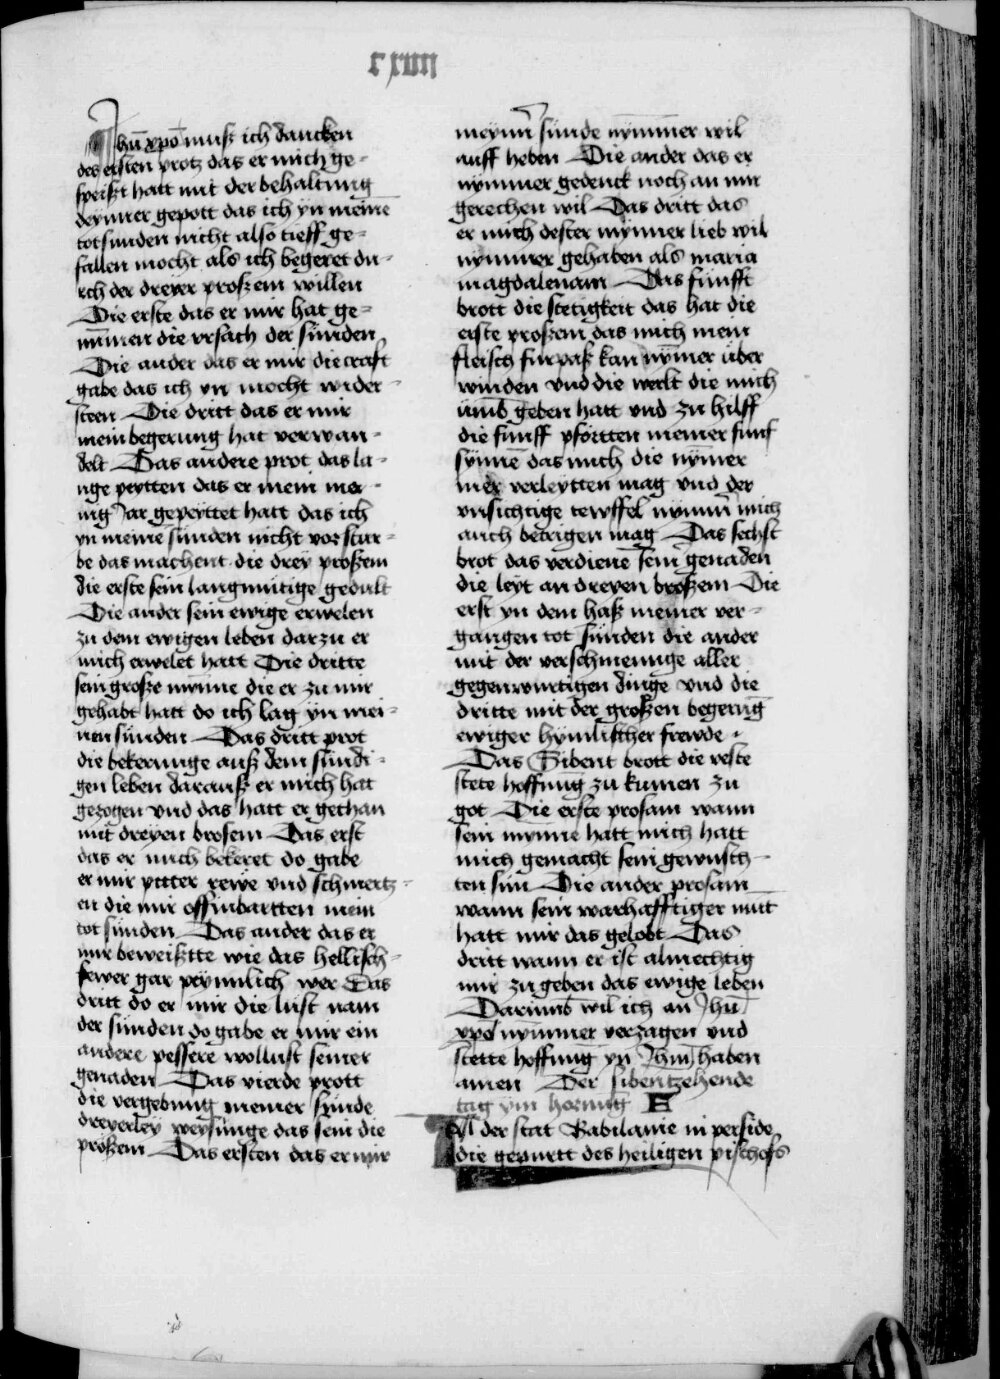 cxviii
Jhū xpō muß ich dancken
des ersten protz das er mich ge-
speißt hatt mit der behaltung
deynner gepott das ich yn meinē
totsunden nicht also tieff ge-
fallen mocht als ich begeret du-
rch der dreyer proßem willen
Die erste das er mir hat ge-
nūmen die vrsach der sünden
Die ander das er mir die craft
gabe das ich yn mocht wider-
steen Die dritt das er mir
mein begerung hat verwan-
delt Das andere prot das la-
nge peytten das er mein me-
nig Jar gepeyttet hatt das ich
yn meinē sünden nicht vorstur-
be das machent die drey proßem
die erste sein langmütige gedult
Die ander sein ewige erwelen
zu dem ewigen leben darzu er
mich erwelet hatt Die dritte
sein große mynne die er zu mir
gehabt hatt do ich lag yn mei-
nen sünden Das dritt prot
die bekerunge auß dem sündi-
gen leben darauß er mich hat
gezogen vnd das hatt er gethan
mit dreyen brosem Das erst
das er mich bekeret do gabe
er mir pitter rewe vnd schmertz-
en die mir offinbartten mein
tot sünden Das ander das er
mir beweißtte wie das hellisch-
fewer gar peynnlich wer Das
dritt do er mir die lust nam
der sünden do gabe er mir ein
andere pessere wollust seiner
genaden Das vierde prott
die vergebung meiner sünde
dreyerley weysunge das sein die
proßem Das ersten das er mir
meynn̄ sünde nymmer wil
auff heben Die ander das er
nymmer gedenck noch an mir
gerechen wil Das dritt das
er mich dester mynner lieb wil
nymmer gehaben als maria
magdalenam Das fünfft
brott die stetigkeit das hat die
erste proßem das mich mein
fleisch furpaß kan nȳmer über
winden vnd die welt die mich
ūmb geben hatt vnd zu hilff
die fünff pfortten meiner funf
synnē das mich die nȳmer
mer verleytten mag vnd der
vnsichtige tewffel nymm̄ mich
auch betrigen mag Das sechst
brot das verdienē sein̄ genaden
die leyt an dreyen broßem Die
erst yn dem haß meiner ver-
gangen tot sünden die ander
mit der verschmeunge aller
gegenwurtigen dinge vnd die
dritte mit der großen begerūg
ewiger hymlischer frewde
Das Sibent brott die veste
stete hoffnūg zu kumen zu
got Die erste prosam wann
sein mynne hatt mich hatt
mich gemacht sein gewünsch-
ten sun Die ander prosam
wann sein warhafftiger mūt
hatt mir das gelobt Das
dritt wann er ist almechtig
mir zu geben das ewige leben
Darūmb wil ich an Jhū
xpō nymmer verzagen vnd
stette hoffnūg yn Jhm̄ haben
amen Der sibentzehende
tag ym hornūg E
In der stat Babilanie in perside
die gepurtt des heiligen pischofs